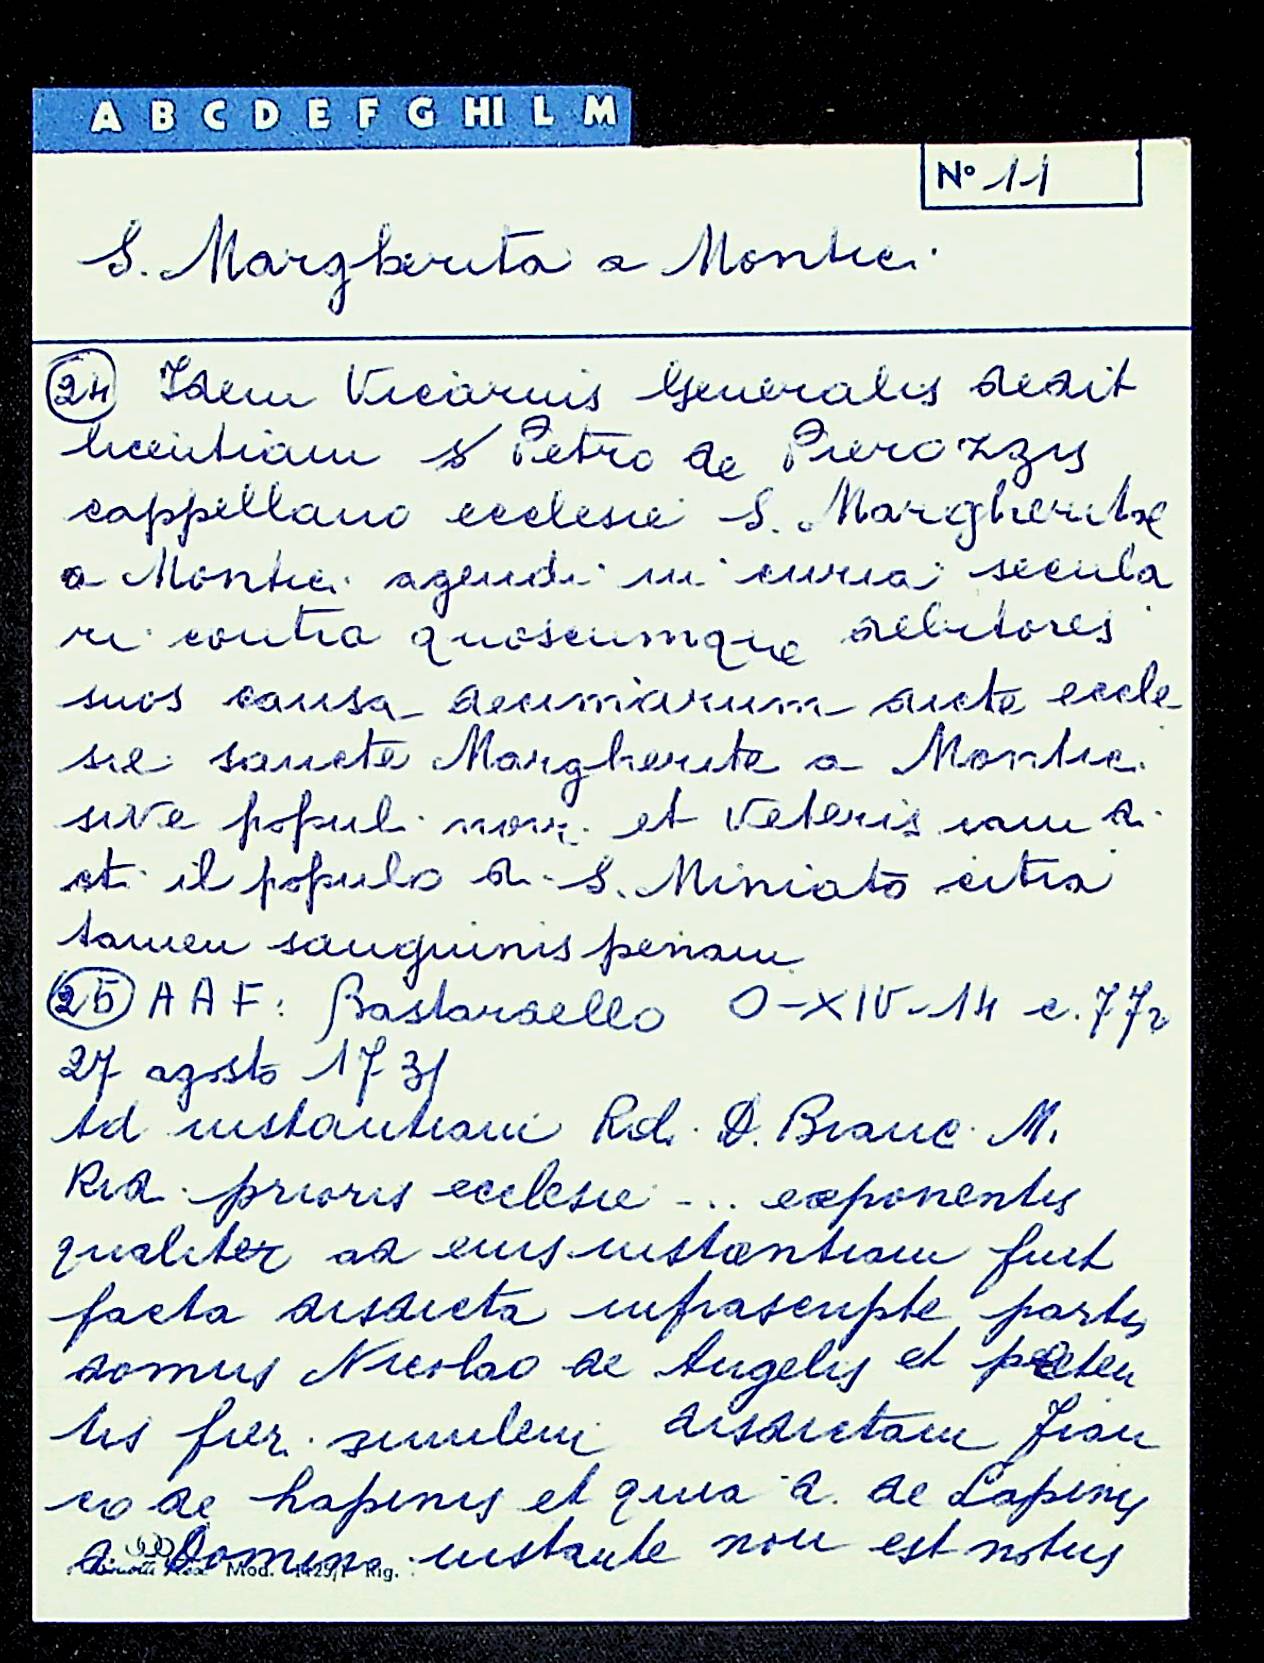 A B C D E F G HI L M
N° 11
S. Margherita a Montici
24 Idem Vicarius Generalis dedit
licentiam s Petro de Pierozzis
cappellano ecclesie S. Margherite
a Montici agendi in curia secula
ri contra quoscumque debitores
suos causa decimarum dicte eccle
sie sancte Margherite a Montici
sive populi novi et veteris iam di
cti il populo di S. Miniato citra
tamen sanguinis penam
25 AAF: Bastardello O-XIV-14 c. 77r
27 agosto 1731
Ad instantiam Rd. D. M.
prioris ecclesie ... exponentis
qualiter ad eius instantiam fuit
facta disdicta infrascripte partis
domus Nicolao de Angelis et peten
tis fieri similem disdictam Fran
co de Lapinis et quia d. de Lapinis
a Domino instante non est notus
Mod. Rig.